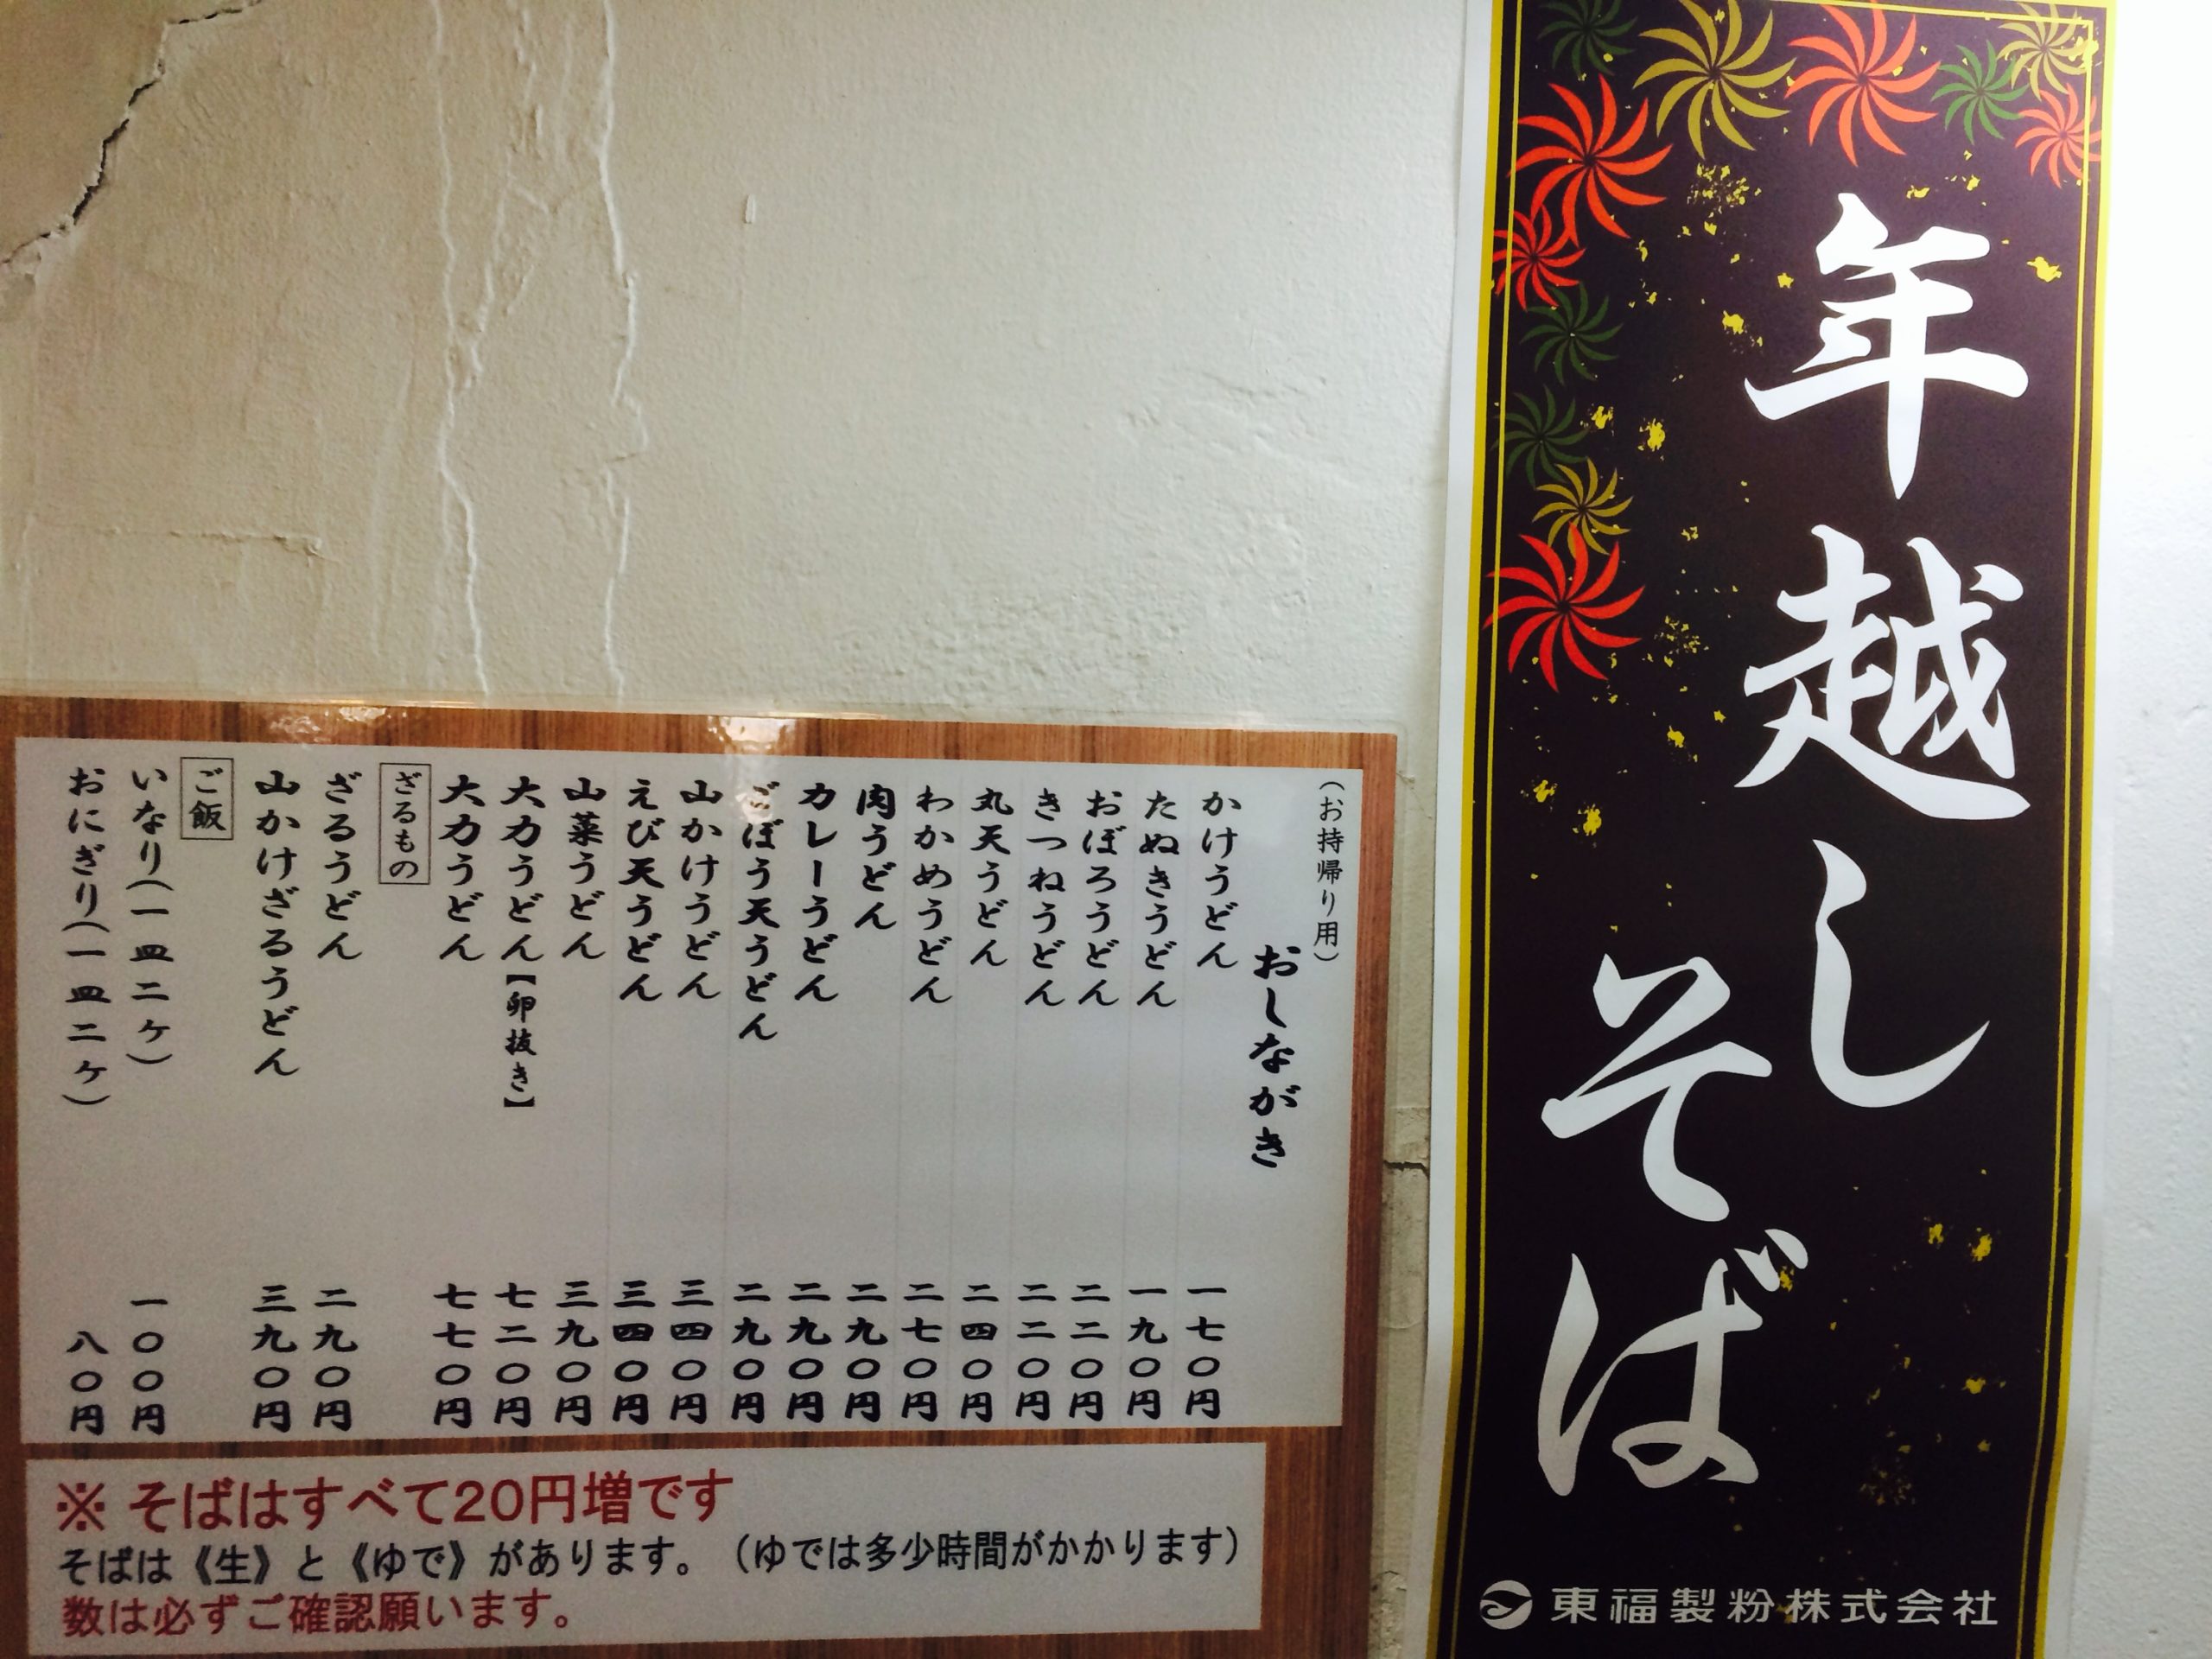 年越し
そば
東福製粉株式会社
(お持帰り用)
おしながき
かけうどん 一七〇円
たぬきうどん 一九〇円
おぼろうどん 二二〇円
きつねうどん 二二〇円
丸天うどん 二四〇円
わかめうどん 二七〇円
肉うどん 二九〇円
カレーうどん 二九〇円
ごぼう天うどん 二九〇円
山かけうどん 三四〇円
えび天うどん 三四〇円
山菜うどん 三九〇円
大力うどん【卵抜き】 七二〇円
大力うどん 七七〇円
ざるもの
ざるうどん 二九〇円
山かけざるうどん 三九〇円
ご飯
いなり(一皿二ケ) 一〇〇円
おにぎり(一皿二ケ) 八〇円
※ そばはすべて20円増です
そばは《生》と《ゆで》があります。(ゆでは多少時間がかかります)
数は必ずご確認願います。